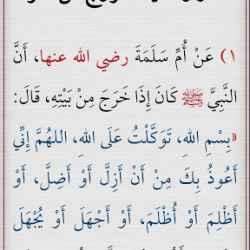 ١) عَنْ أُمِّ سَلَمَةَ رضي الله عنها، أَنَّ
النَّبِيَّ ﷺ كَانَ إِذَا خَرَجَ مِنْ بَيْتِهِ، قَالَ:
«بِسْمِ اللهِ، تَوَكَّلْتُ عَلَى اللهِ، اللهُمَّ إِنِّي
أَعُوذُ بِكَ مِنْ أَنْ أَزِلَّ أَوْ أَضِلَّ، أَوْ
أَظْلِمَ أَوْ أُظْلَمَ، أَوْ أَجْهَلَ أَوْ يُجْهَلَ